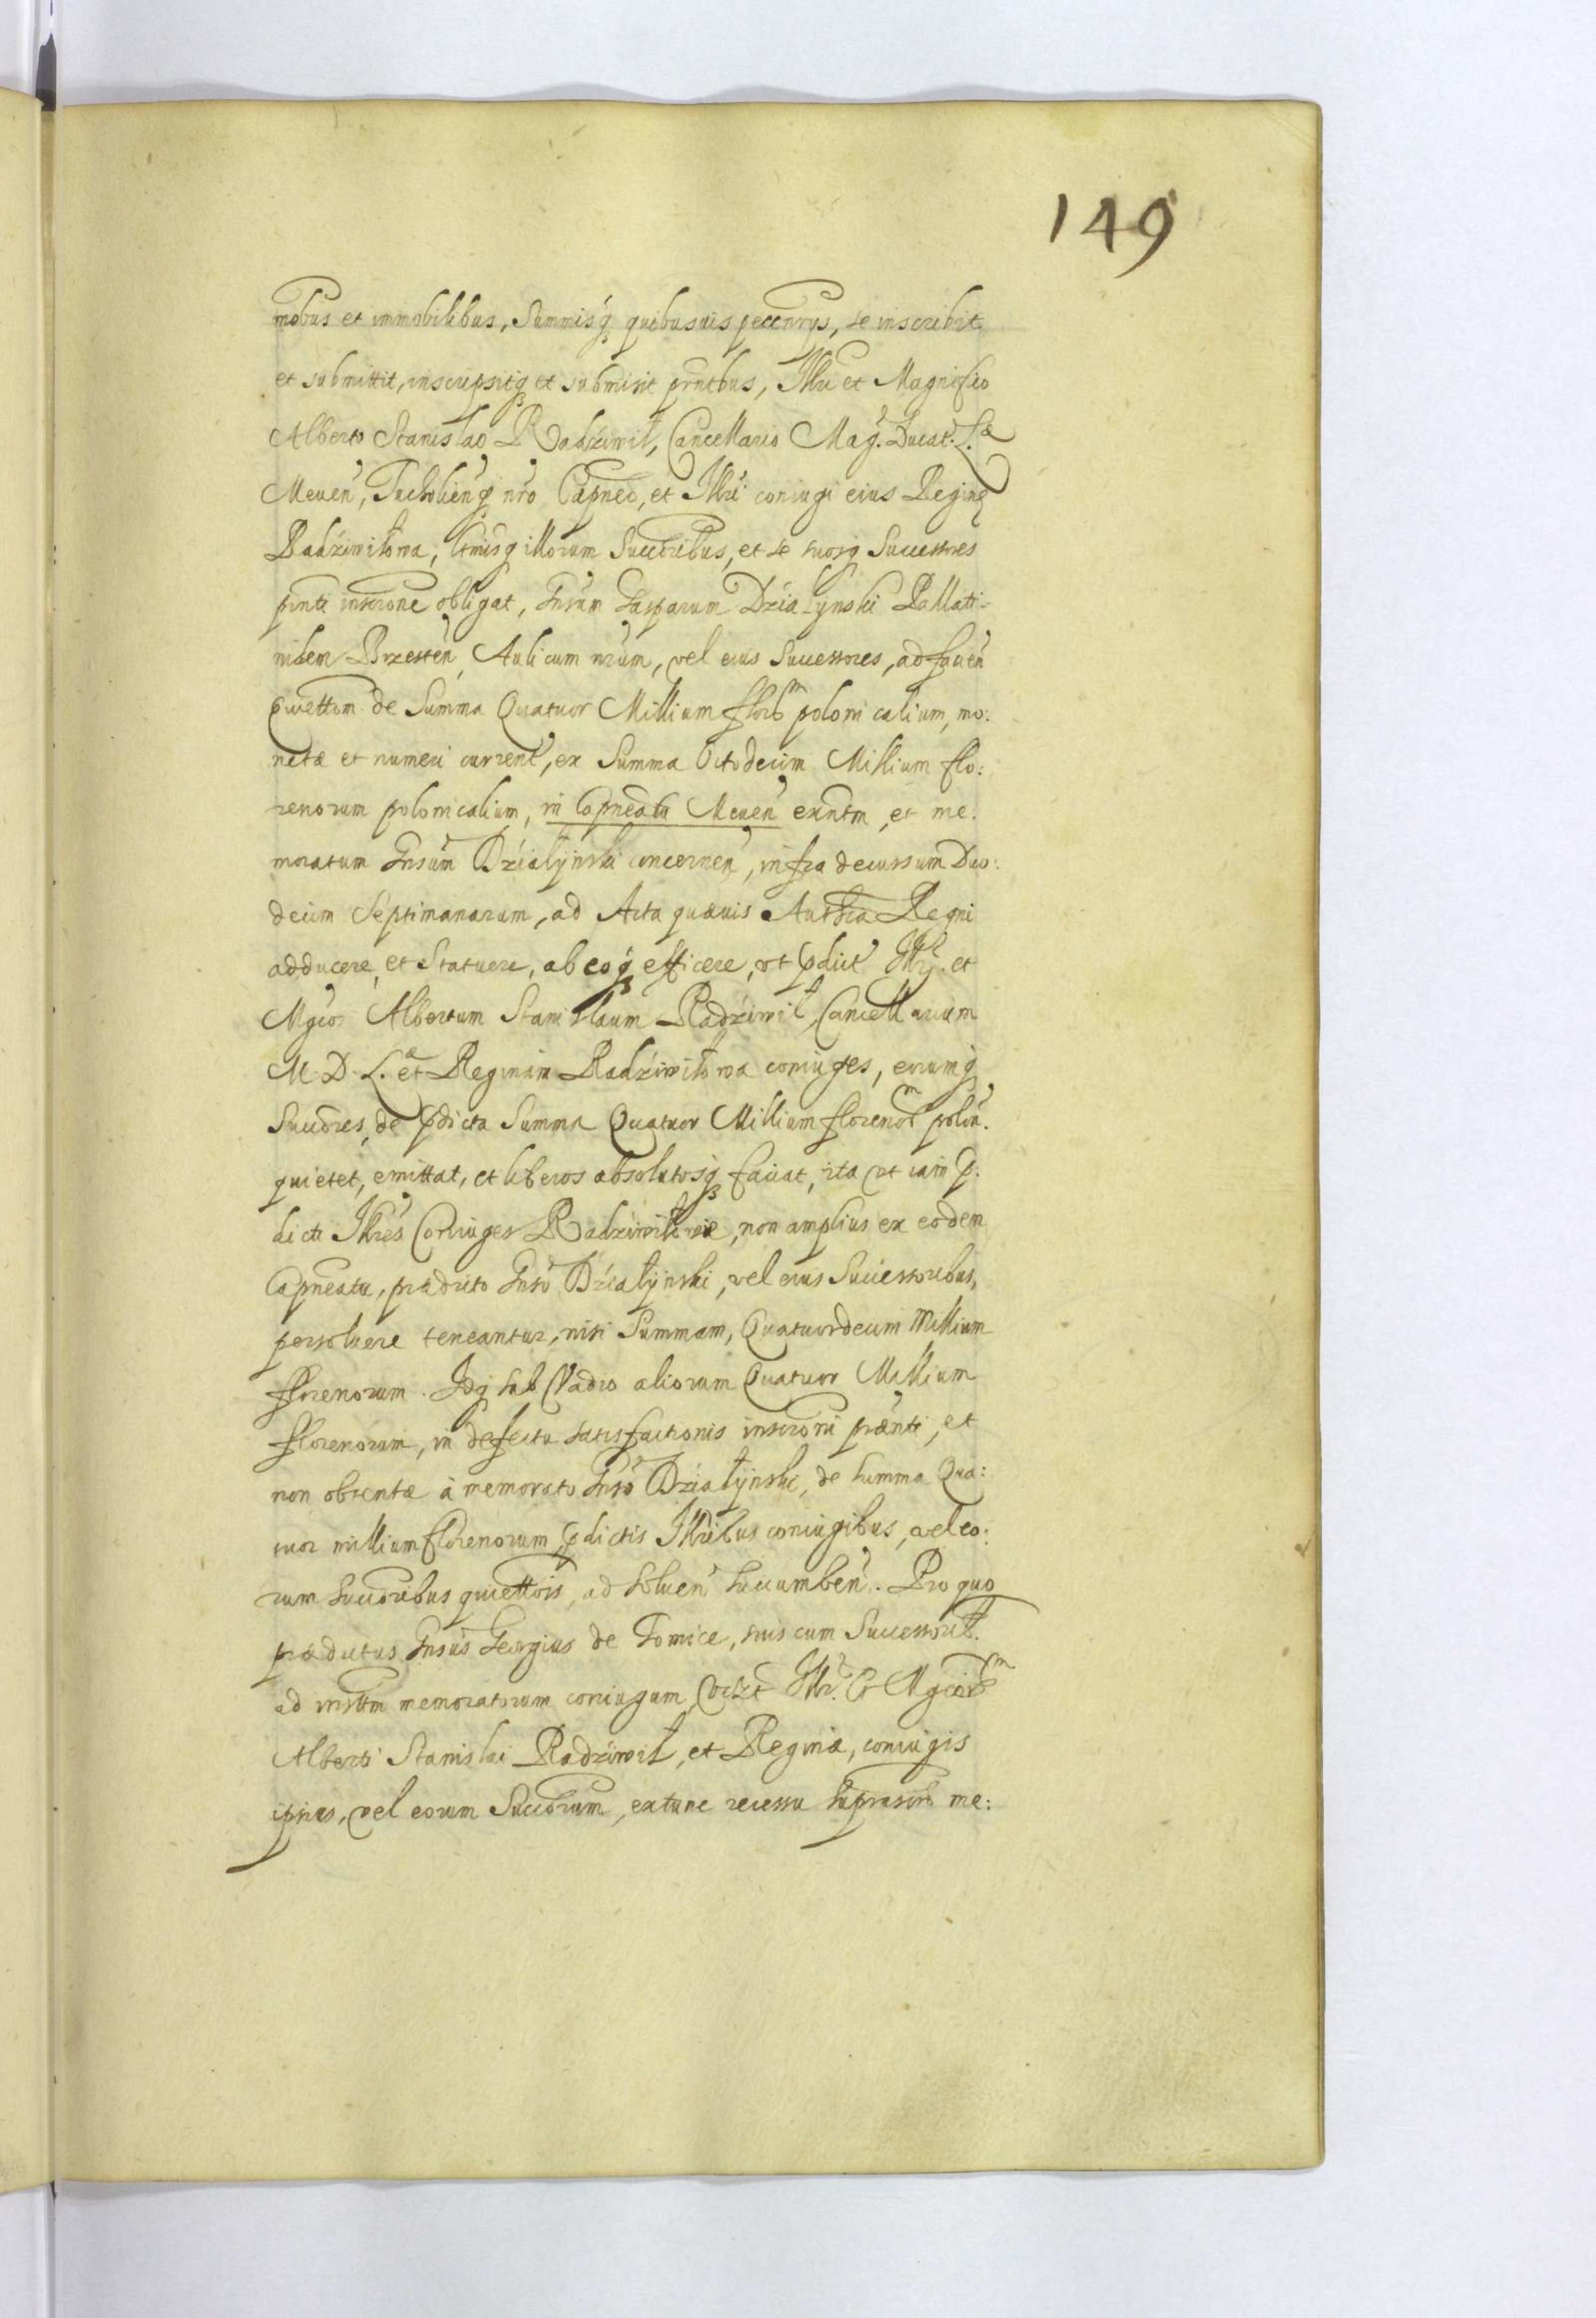 149
mobus et immobilibus, Summisq; quibusuis pecunrys, se inscribit
et submittit, inscripsitq; et submisit prntbus, Illri et Magnifico
Alberto Stanislao Radziwił, Cancellario Mag. Ducat. L.æ
Meuen, Tucholienq; nro Capneo, et Illri coniugi eius Reginę
Radziwiłowa, ltmisq; illorum Succoribus, et se suosq; Successores
pnti inscrone obligat, Gnsum Gasparum Działynski Pallati-
nidem Brzesten, Aulicum nrum, vel eius Successores, ad facien
Quiettom de Summa Quatuor Millium floro^m polonicalium, mo:
netæ et numeri current, ex Summa Octodecim Millium flo:
renorum polonicalium, in Capneatu Meuen exntm, et me:
moratum Gnsum Działynski concernen, infra decursum Duo:
decim Septimanarum, ad Acta quæuis Authca Regni
adducere, et Statuere, ab eoq; efficere, ut pdict Illr. et
Mgcos Albertum Stanislaum Radziwił, Cancellarium
M. D. L.æ et Reginam Radziwiłowa coniuges, eorumq;
Succores, de pdicta Summa Quatuor Millium floreno^m polon.
quietet, emittat, et liberos absolutosq; faciat, ita ut iam p:
dicti Illres Coniuges Radziwiłowie, non amplius ex eodem
Capneatu, prædicto Gnso Działynski, vel eius Successoribus,
persoluere teneantur, nisi Summam, Quatuordecim Millium
florenorum. Idq; sub Vadio aliorum Quatuor Millium
florenorum, in defectu satisfactionis inscroni prænti, et
non obtentæ à memorato Gnso Działynski, de summa Qua:
tuor millium florenorum pdictis Illribus coniugibus, vel eo:
rum succoribus quiettois, ad soluen succumben. Pro quo
prædictus Gnsus Georgius de Tomice, suis cum Successorib.
ad insttm memoratorum coniugum, vdzt Illr. et Mgcor^m
Alberti Stanislai Radziwił, et Reginæ, coniugis
ipsius, vel eorum Succorum, extunc recessu suprascri me: